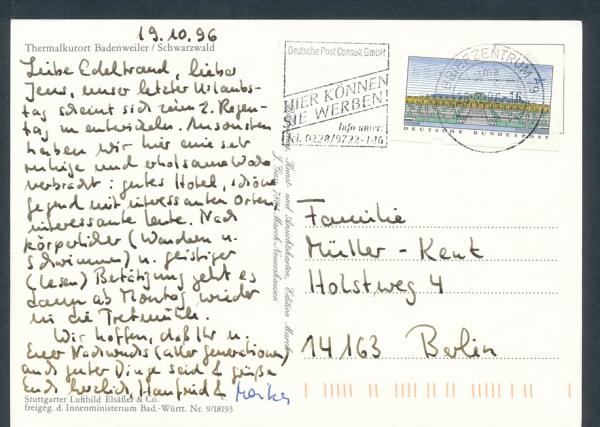 19.10.96
Thermalkurort Badenweiler / Schwarzwald
Liebe Edeltraud, lieber
Jens, unser letzter Urlaubs-
tag scheint sich zum 2. Regen-
tag zu entwickeln. Ansonsten
haben wir hier eine sehr
ruhige und erholsame Woche
verbracht: gutes Hotel, schöne
Gegend mit interessanten Orten,
interessante Leute. Nach
körperlicher (Wandern u.
Schwimmen) u. geistiger
(Lesen) Betätigung geht es
dann ab Montag wieder
in die Tretmühle.
Wir hoffen, daß Ihr u.
Euer Nachwuchs (aller Generationen)
auch guter Dinge seid & grüße
Euch herzlich, Manfried &
Stuttgarter Luftbild Elsäßer & Co.
freigeg. d. Innenministerium Bad.-Württ. Nr. 9/18193
Kunst- und Ansichtskarten, Edition March
March-Neuershausen
Deutsche Post Consult GmbH
HIER KÖNNEN
SIE WERBEN!
Info unter:
Tel. 0228/9722-116
BRIEFZENTRUM 79
DEUTSCHE BUNDESPOST
Familie
Müller - Kent
Holstweg 4
14163 Berlin